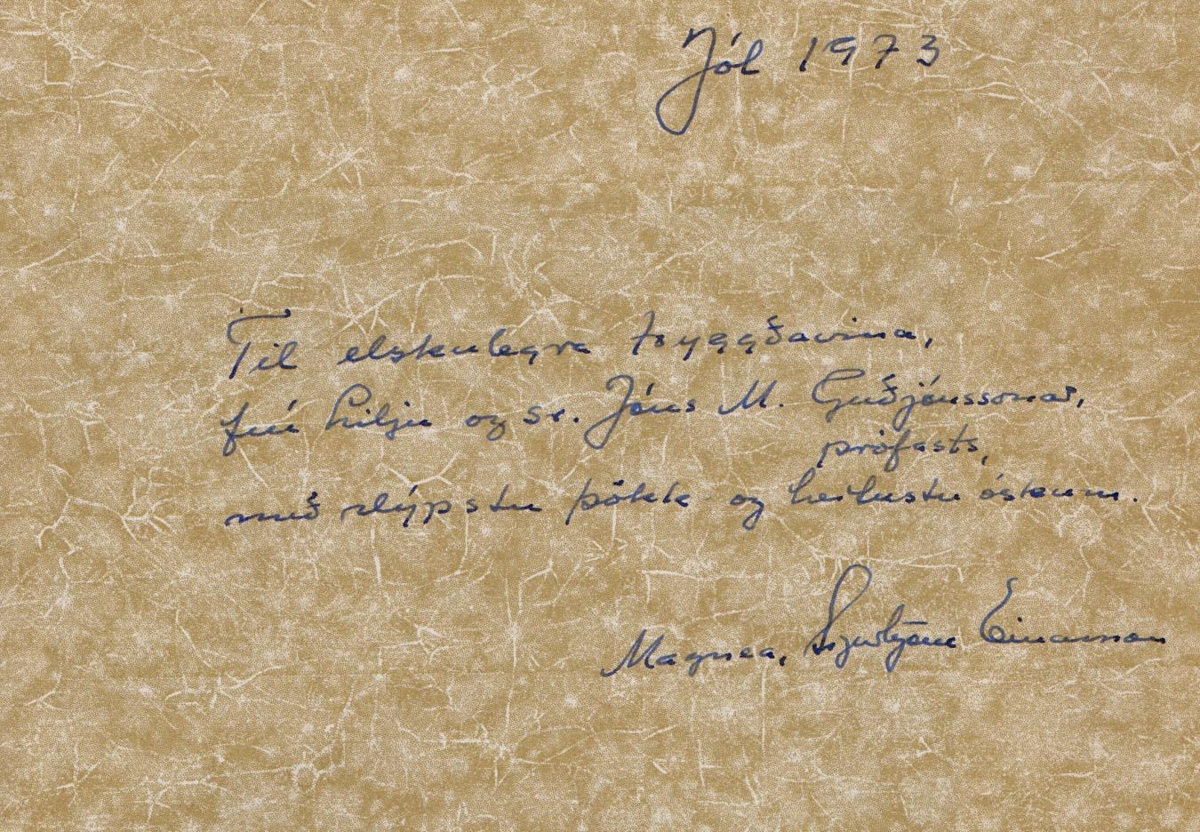 Jól 1973
Til elskulegra tryggðavina,
frú Lilju og sr. Jóns M. Guðjónssonar,
prófasts,
með dýpstu þökk og heilustu óskum.
Magnea, Sigurbjörn Einarsson